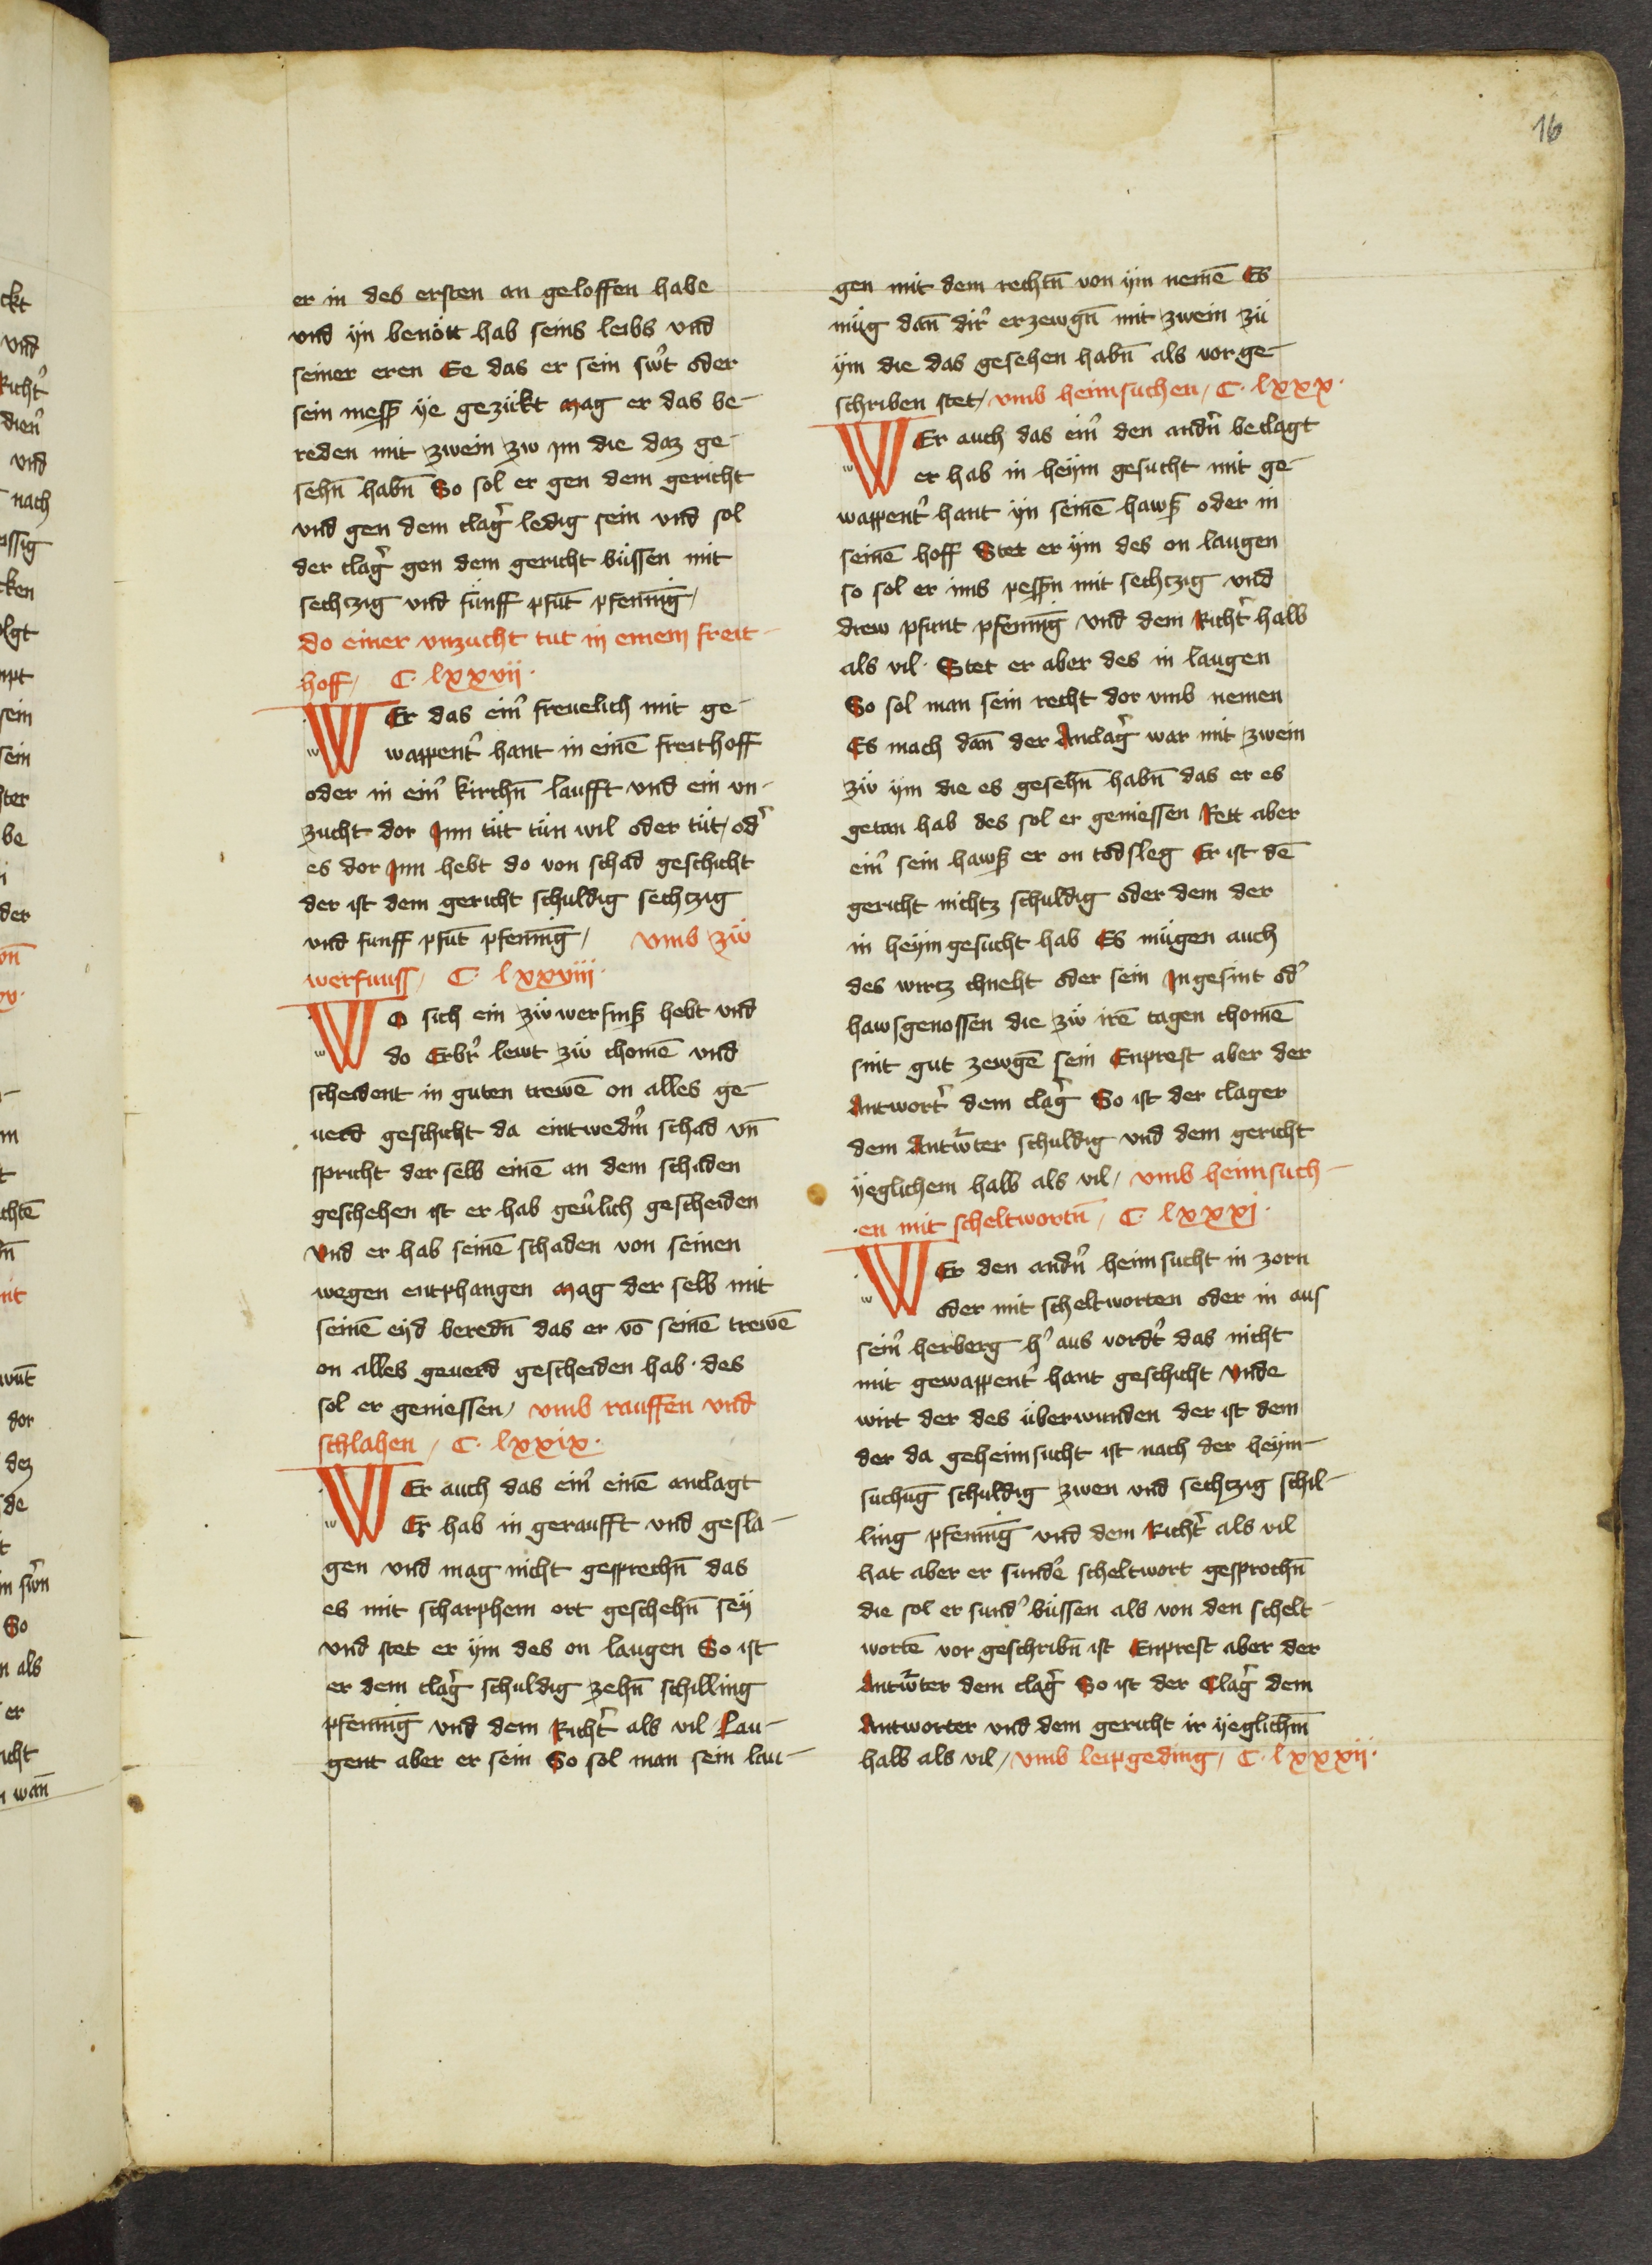 16
er in des ersten an geloffen habe
vnd yn benött hab seins leibs vnd
seiner eren Ee das er sein sw̉t oder
sein mess̄ ye gezükt mag er das be-
reden mit zwein zw im die daz ge-
sehn̄ habn̄ So sol er gen dem gericht
vnd gen dem clag̉ ledig sein vnd sol
der clag̉ gen dem gericht büssen mit
sechtzig vnd fünff pfūt pfennīg /
do einer vnzucht tut in einem freit-
hoff / C. lxxvii.
WEr das ein̉ freuelich mit ge-
wappent̉ hant in einē freithoff
oder in ein̉ kirchn̄ laufft vnd ein vn-
zucht dor Inn tüt tün wil oder tüt / od̉
es dor Inn hebt do von schad geschicht
der ist dem gericht schuldig sechtzig
vnd funff pfūt pfennīg / vmb zẅ
werfnuss / C. lxxviii.
WO sich ein zẅwerfniss̄ hebt vnd
do Erbr̉ lewt zẅ chomē vnd
scheident in guten trewē on alles ge-
uerd geschicht da eintwedm̉ schad vn̄
spricht der selb einē an dem schaden
geschehen ist er hab geu̔lich gescheiden
vnd er hab seinē schaden von seinen
wegen entphangen Mag der selb mit
seinē eyd beredn̄ das er vō seinē trewē
on alles geuerd gescheiden hab. des
sol er geniessen / vmb rauffen vnd
schlahen / C. lxxix.
WEr auch das ein̉ einē anclagt
Er hab in geraufft vnd gesla-
gen vnd mag nicht gesprechn̄ das
es mit scharphem ort geschehn̄ sey
vnd stet er ym des on laugen So ist
er dem clag̉ schuldig zehn̄ schilling
pfennīg vnd dem Richt̉ als vil Lau-
gent aber er sein So sol man sein lau-
gen mit dem rechtn̄ von ym nemē Es
müg dan̄ dir̉ erzewgn̄ mit zwein zü
ym die das gesehen habn̄ als vor ge-
schriben stet / vmb heimsuchen / C. lxxx.
WEr auch das ein̉ den andn̉ beclagt
er hab in heym gesucht mit ge-
wappent̉ hant yn seinē hawss̄ oder in
seinē hoff Stet er ym des on laugen
so sol er ims pessn̄ mit sechtzig vnd
drew pfunt pfennīg vnd dem Richt̉ halb
als vil. Stet er aber des in laugen
So sol man sein recht dor vmb nemen
Es mach dan̄ der Anclag̉ war mit zwein
zẅ ym die es gesehn̄ habn̄ das er es
getan hab des sol er geniessen Rett aber
ein̉ sein hawss̄ er on todsleg Er ist dē
gericht nichtz schuldig oder dem der
in heym gesucht hab Es mügen auch
des wirtz chneht oder sein Ingesint od̉
hawsgenossen die zẅ irē tagen chomē
sint gut zewgē sein Enprest aber der
Antwort̉ dem clag̉ So ist der clager
dem Antw̉ter schuldig vnd dem gericht
yeglichem halb als vil / vmb heimsuch-
.en mit scheltwortn̄ / C. lxxxi.
WEr den andn̉ heimsucht in zorn
oder mit scheltworten oder in aus
sein̉ herberg h̉ aus vordt̉ das nicht
mit gewappent̉ hant geschicht vnde
wirt der des überwunden der ist dem
der da geheimsucht ist nach der heym-
suchūg schuldig zwen vnd sechtzig schil-
ling pfennīg vnd dem Richt̉ als vil
hat aber er sunde̔ scheltwort gesprochn̄
die sol er sund̉ büssen als von den schelt-
wortē vor geschribn̄ ist Enprest aber der
Antw̉ter dem clag̉ So ist der Clag̉ dem
Antworter vnd dem gericht ir yeglichm̄
halb als vil / vmb leipgeding / C. lxxxii.